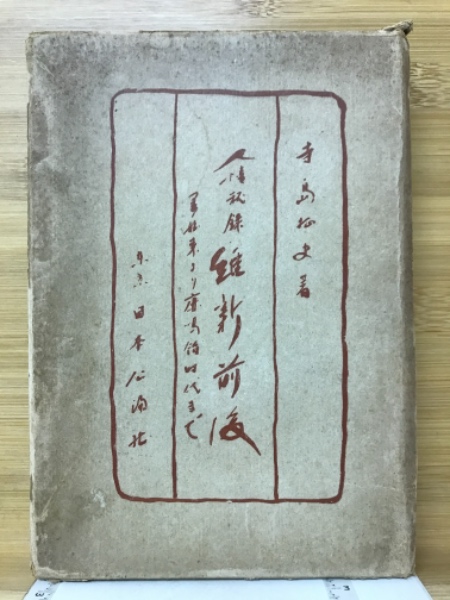 寺島征史著
人情秘録 維新前後
黒船来より鹿鳴館時代まで
東京 日本公論社